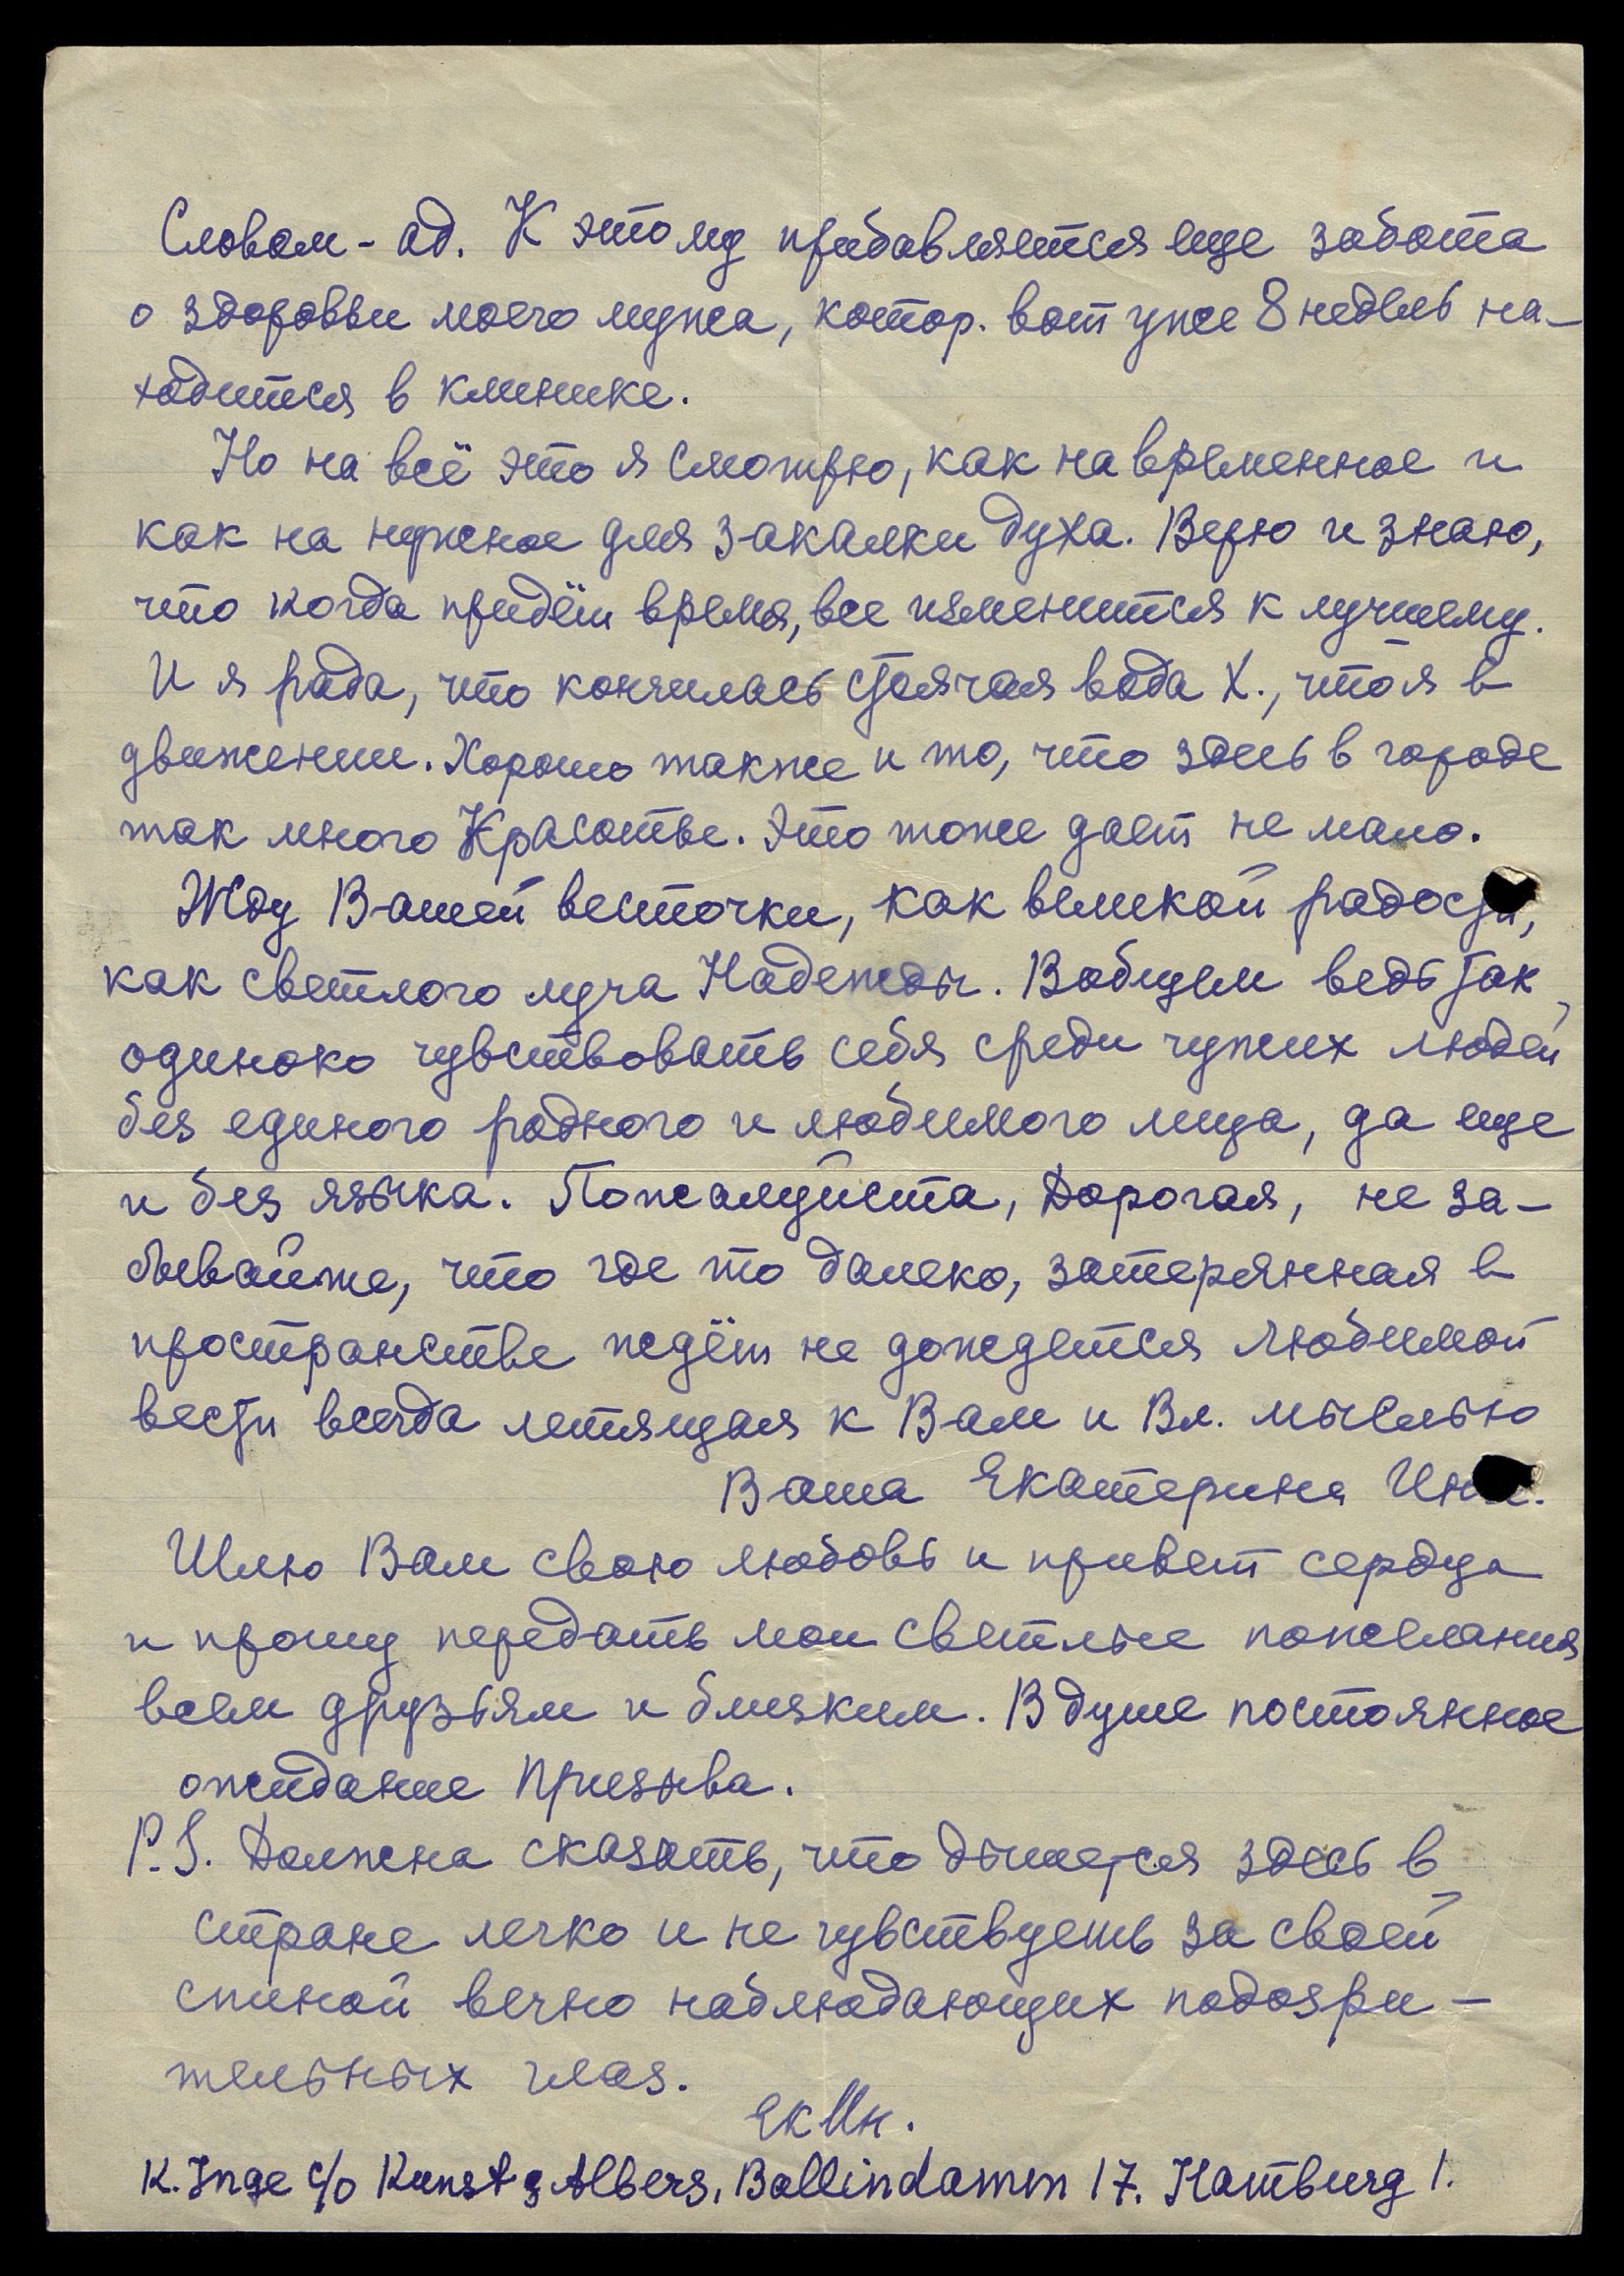 Словом - ад. К этому прибавляется еще забота
о здоровьи моего мужа, котор. вот уже 8 недель на-
ходится в клинике.
Но на всё это я смотрю, как на временное и
как на нужное для закалки духа. Верю и знаю,
что когда придёт время, все изменится к лучшему.
И я рада, что кончилась стоячая вода Х., что я в
движении. Хорошо также и то, что здесь в городе
так много Красоты. Это тоже дает не мало.
Жду Вашей весточки, как великой радости,
как светлого луча Надежды. Вобщем ведь так
одиноко чувствовать себя среди чужих людей,
без единого родного и любимого лица, да еще
и без языка. Пожалуйста, Дорогая, не за-
бывайте, что где то далеко, затерянная в
пространстве ждёт не дождется любимой
вести всегда летящая к Вам и Вл. мыслью
Ваша Екатерина
Шлю Вам свою любовь и привет сердца
и прошу передать мои светлые пожелания
всем друзьям и близким. В душе постоянное
ожидание Призыва.
P.S. Должна сказать, что дышется здесь в
стране легко и не чувствуешь за своей
спиной вечно наблюдающих подозри-
тельных глаз.
ЕкИн.
K. Inge c/o Kunst & Albers, Ballindamm 17. Hamburg 1.